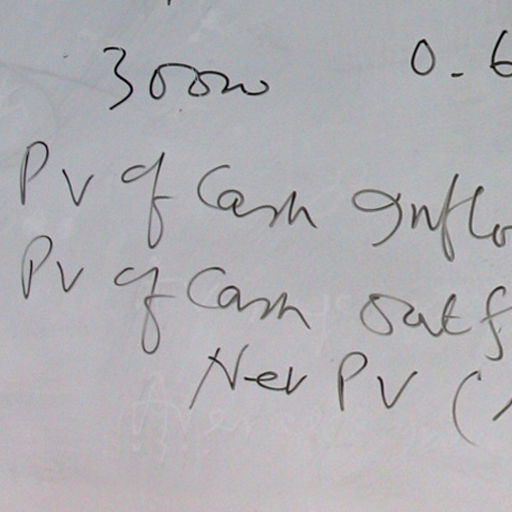 30000 0.6
PV of Cash Inflo
PV of Cash outf
Net PV (